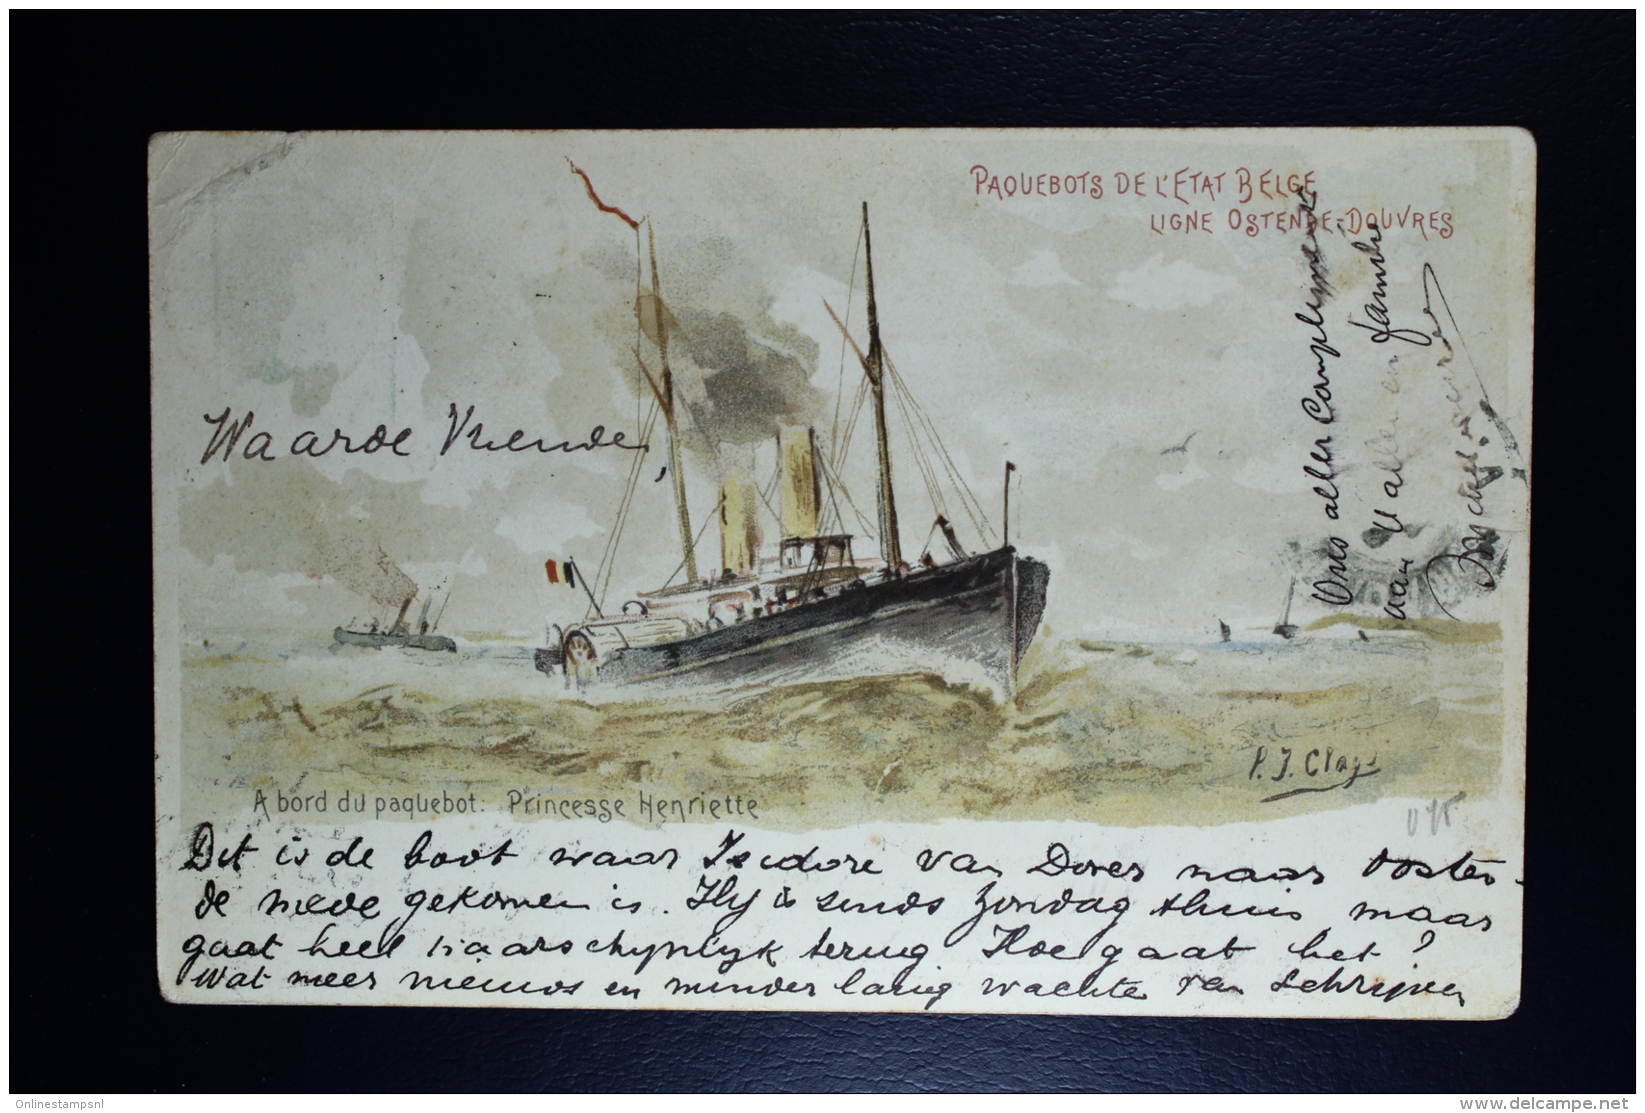 PAQUEBOTS DE L'ETAT BELGE
LIGNE OSTENDE-DOUVRES
Waarde Vriende,
Ons aller Complimenten
aan U aller en familie
P. J. Clays
A bord du paquebot: Princesse Henriette
Dit is de boot waar Isidore van Dover naar Ooster-
de mede gekomen is. Hy is sinds Zondag thuis maar
gaat heel waarschynlyk terug Hoe gaat het?
Wat meer nieuws en minder lang wachten van schrijven
Onlinestampsnl
www.delcampe.net